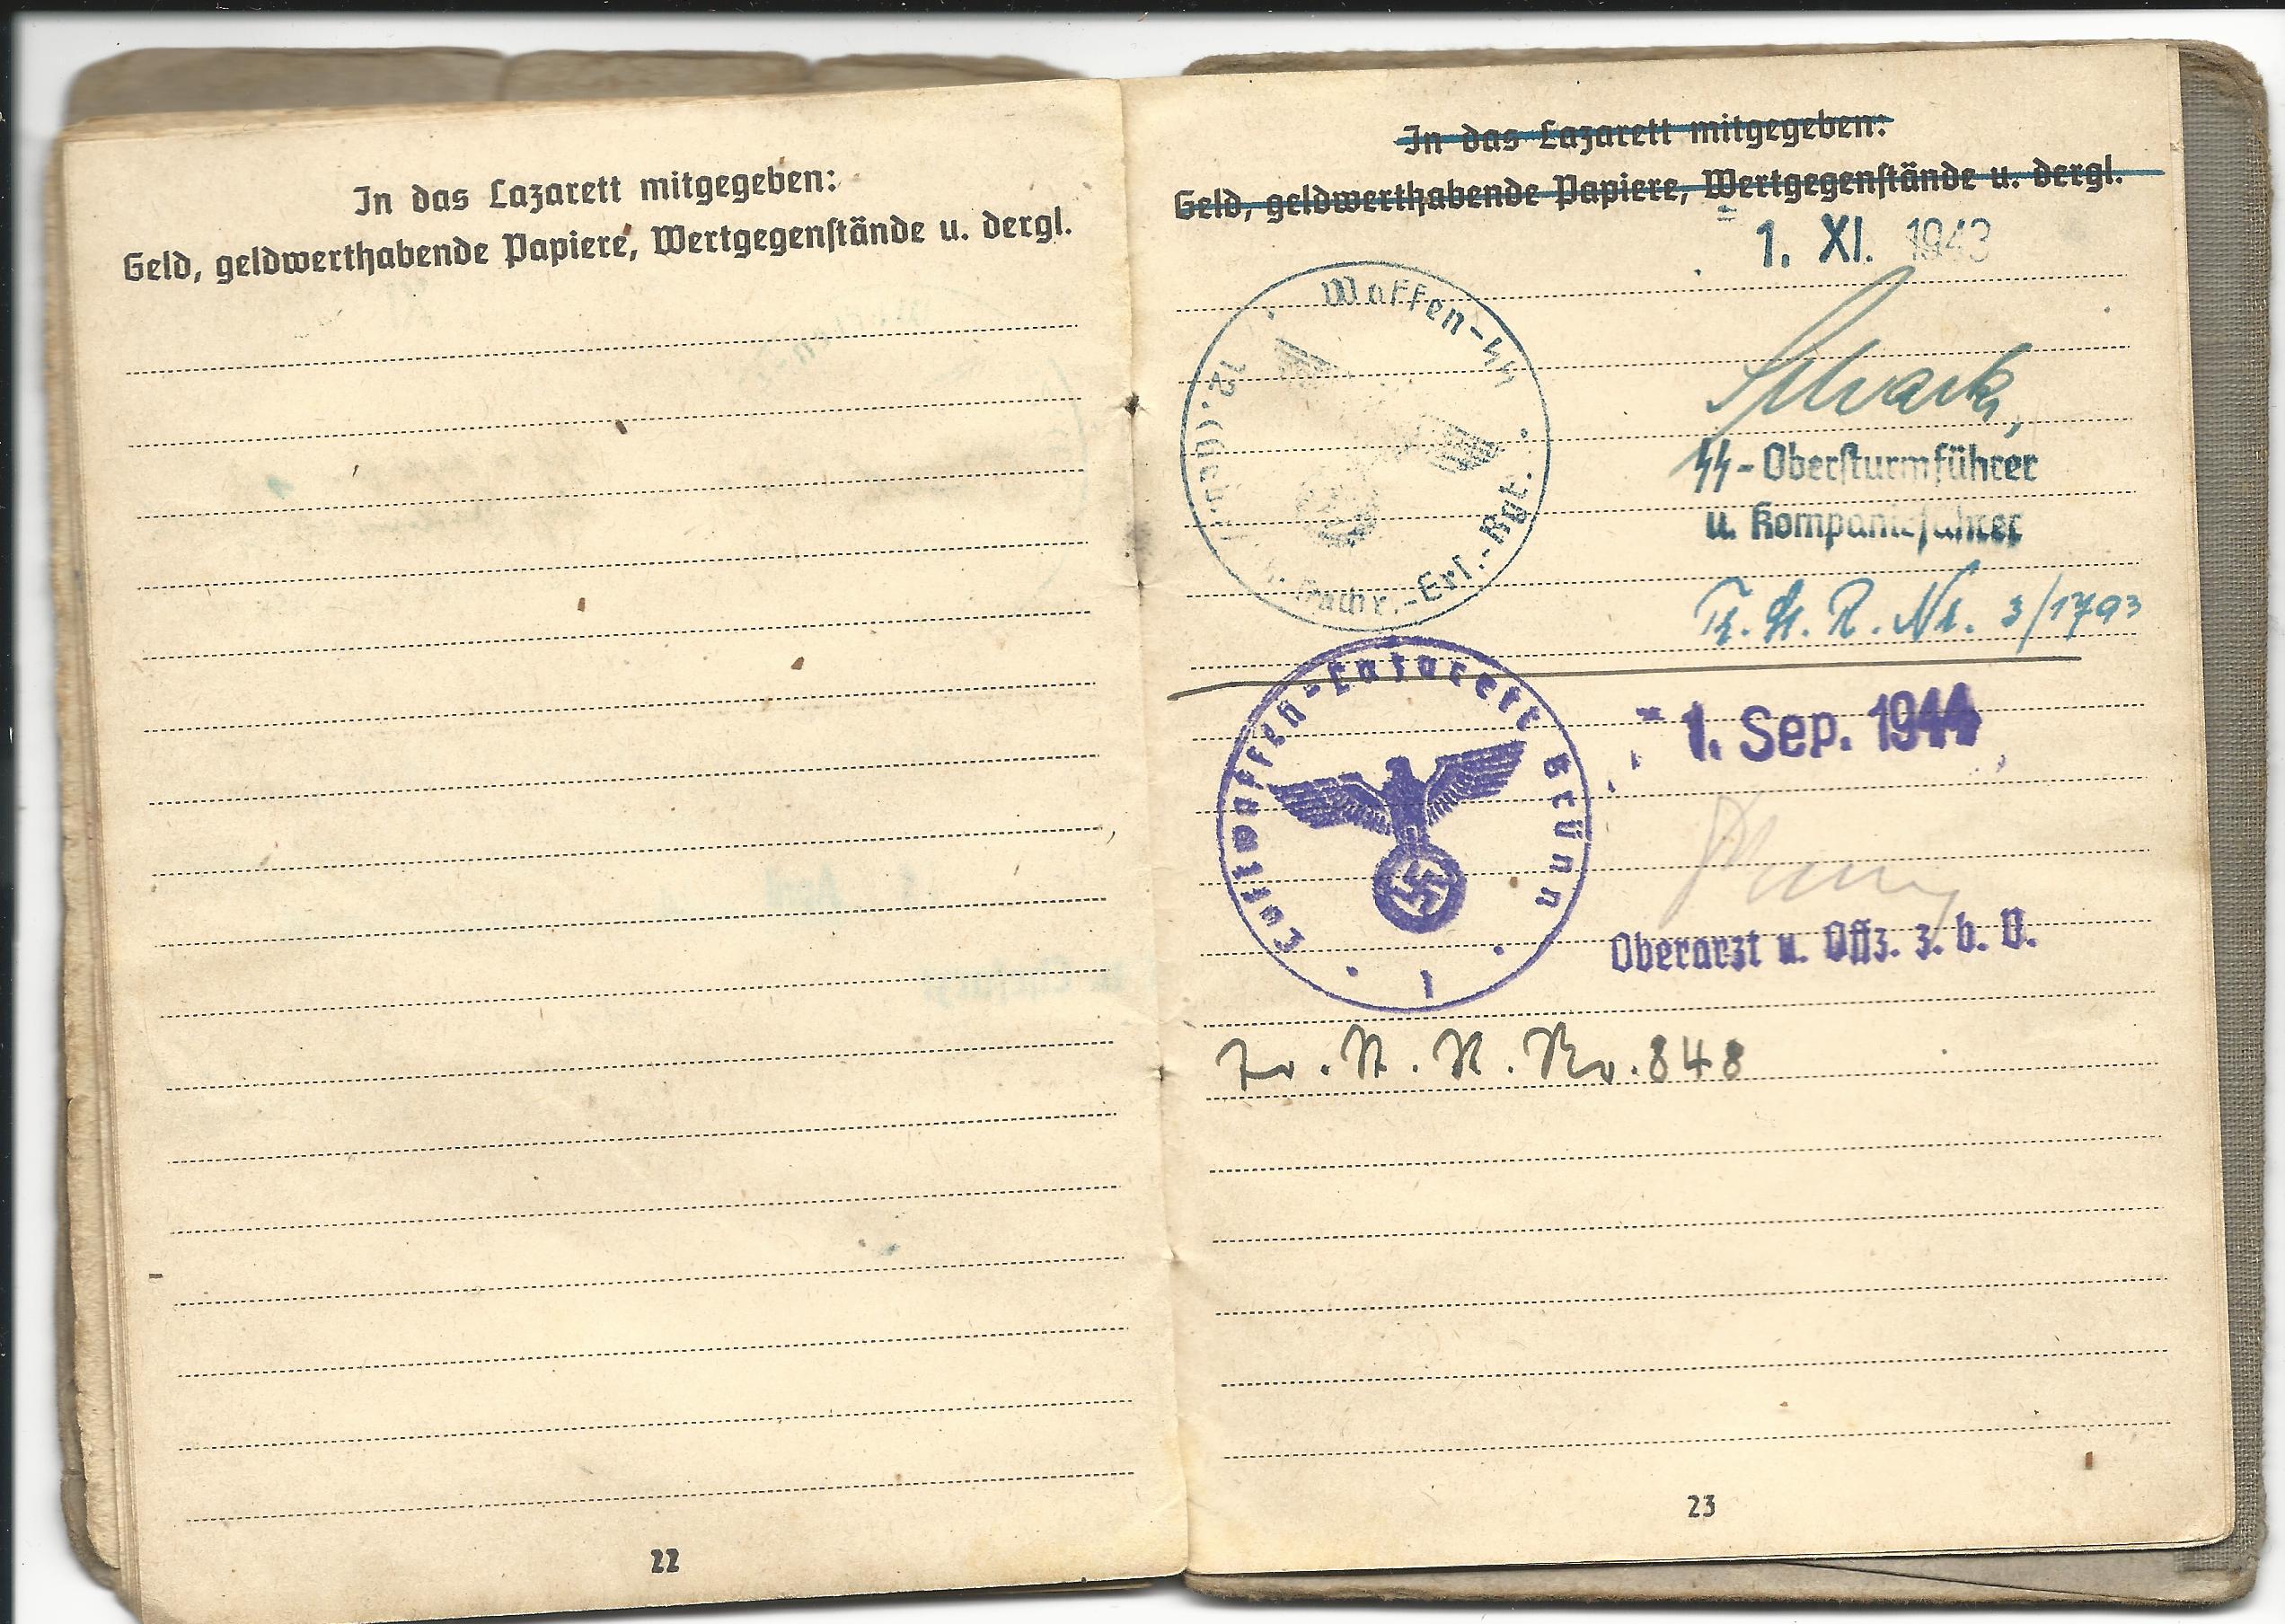 In das Lazarett mitgegeben:
Geld, geldwerthabende Papiere, Wertgegenstände u. dergl.
22
In das Lazarett mitgegeben:
Geld, geldwerthabende Papiere, Wertgegenstände u. dergl.
- 1. XI. 1943
Waffen-SS
12. Nachr.-Erf.-Rgt.
SS-Obersturmführer
u. Kompanieführer
Tr. St. R. Nr. 3/1793
Luftwaffen-Lazarett Brünn
1
- 1. Sep. 1944
Oberarzt u. Offz. z. b. V.
Tr. St. R. Nr. 848
23